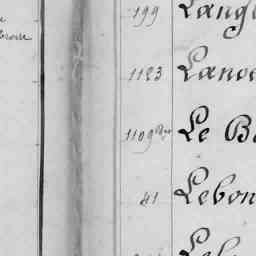 199 Lang
1123 Lano
1109 Bis Le B
41 Lebon
Leb